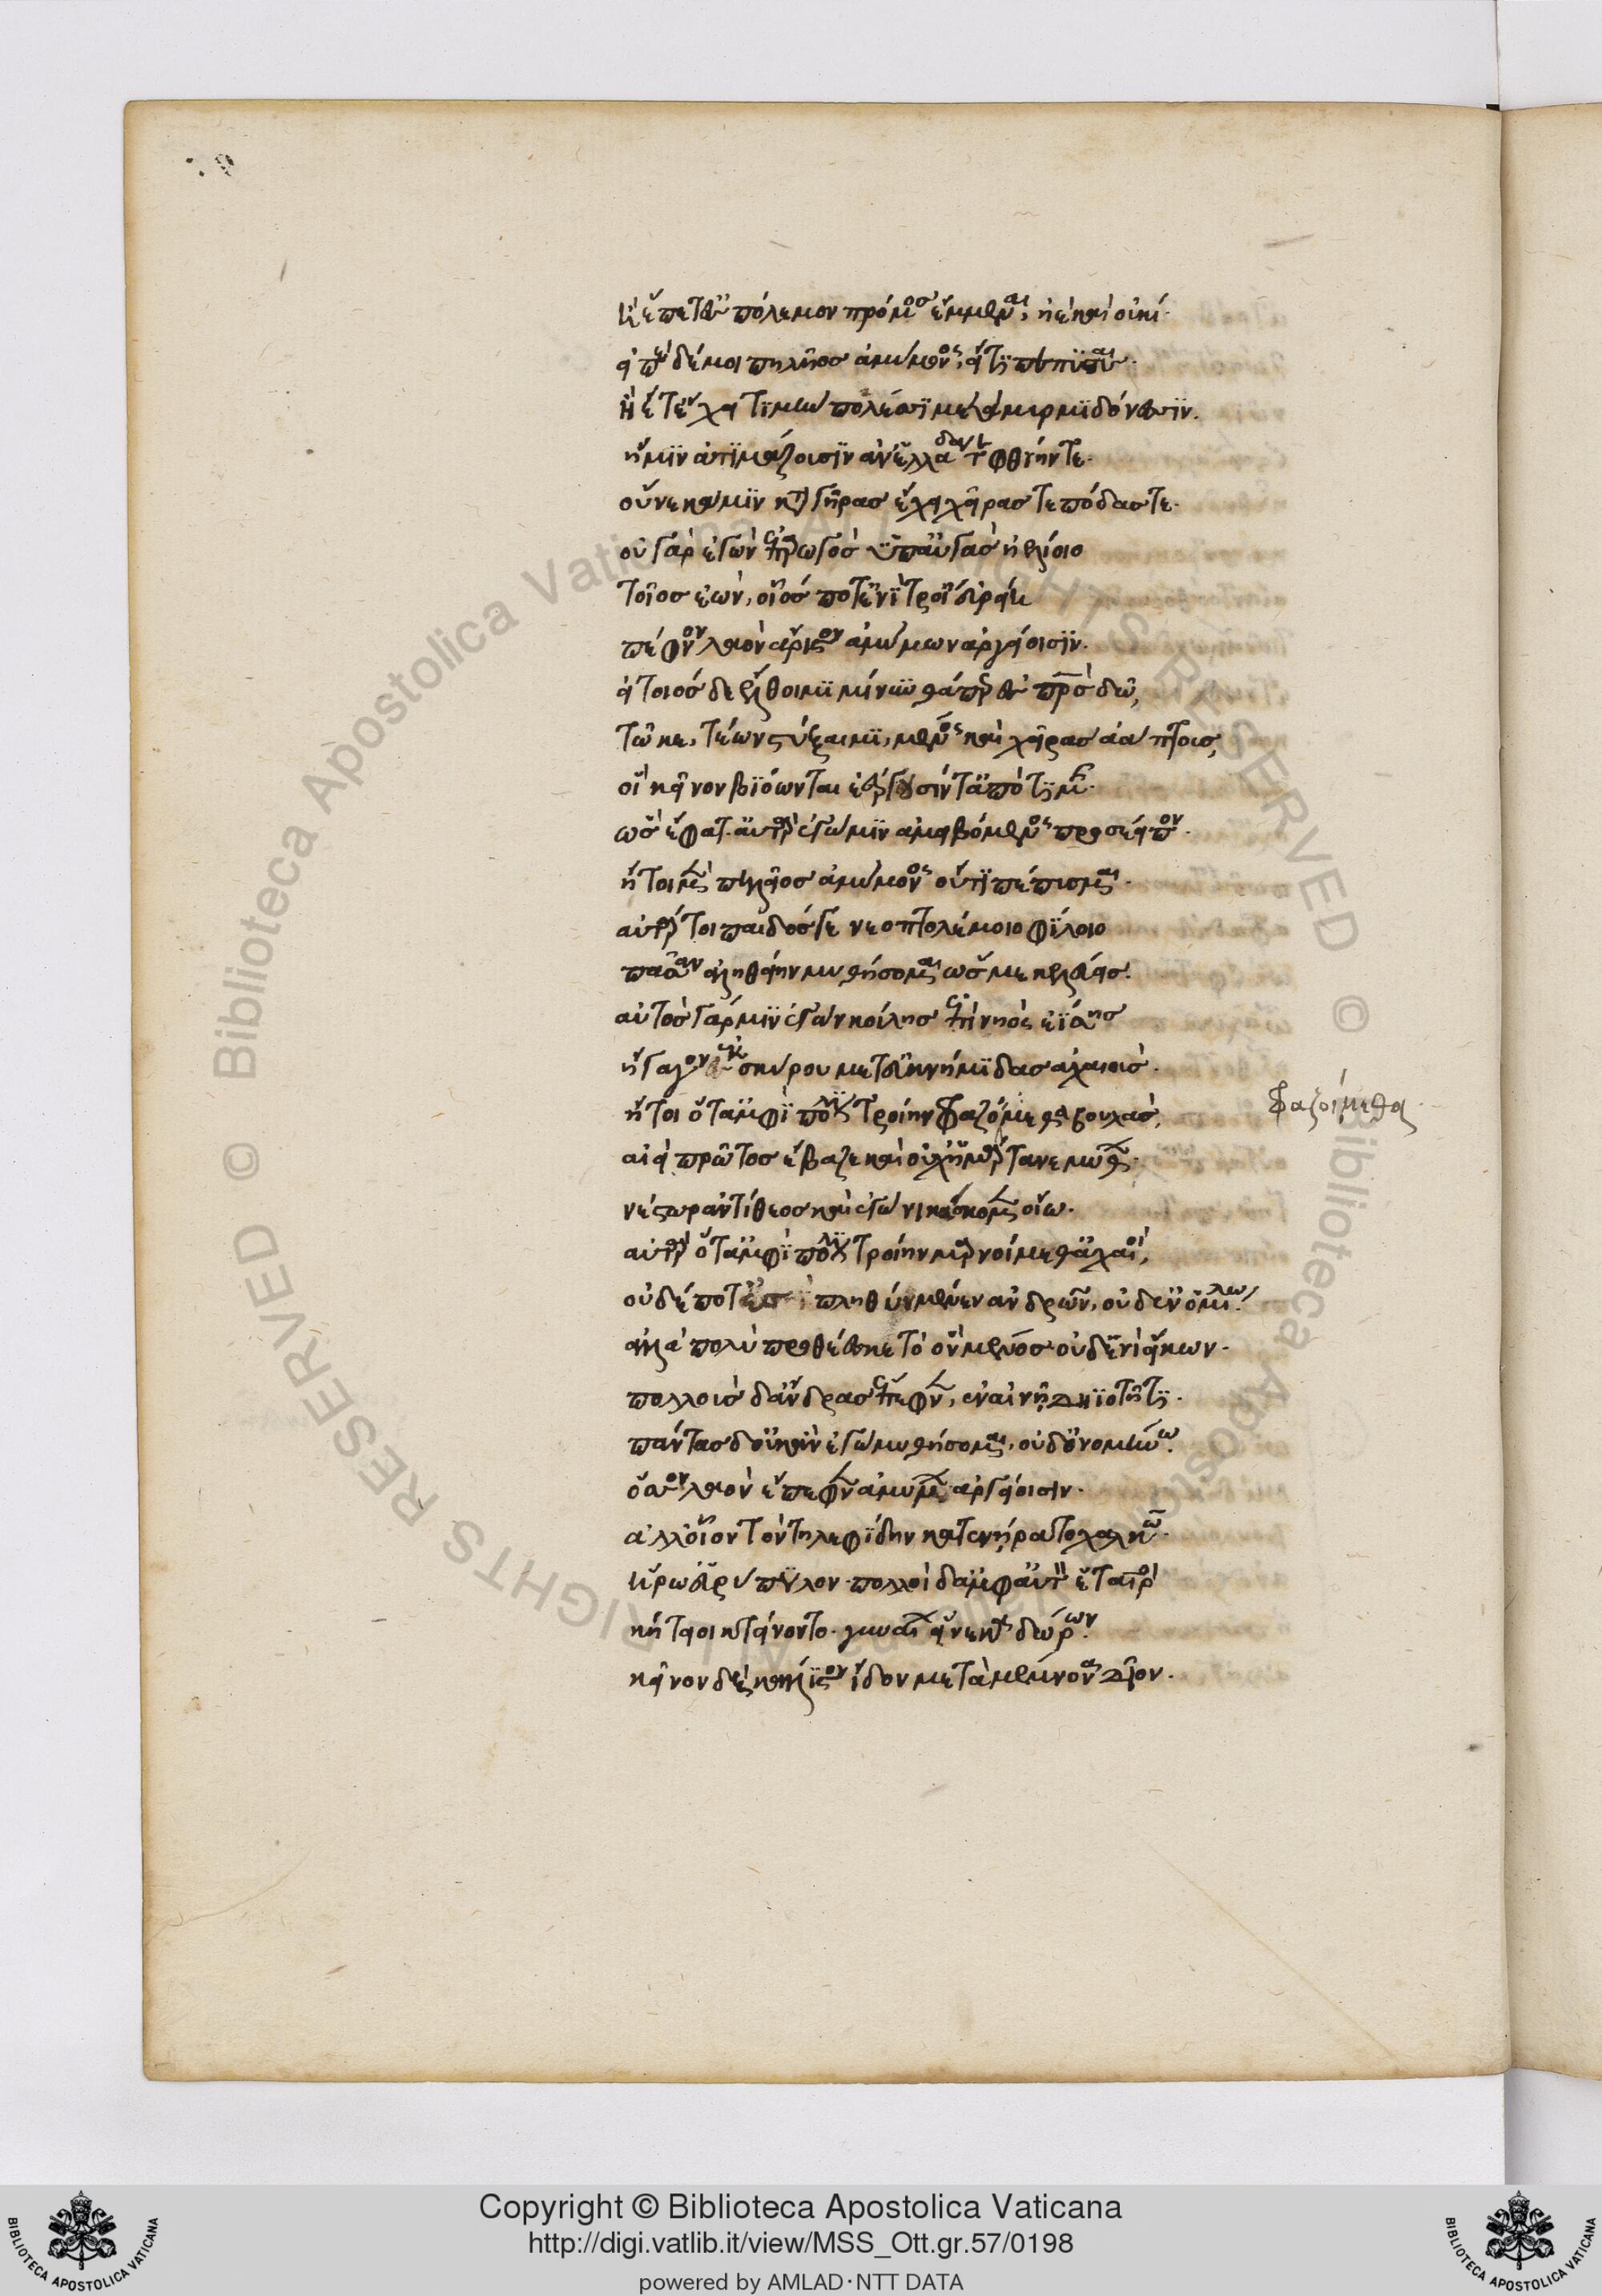 ἢ ἕπετ' ἐς πόλεμον πρόμος ἔμμεναι, ἠὲ καὶ οὐκί.
εἰπὲ δέ μοι πηλῆος ἀμύμονος, εἴ τι πέπυσαι.
ἢ ἔτ' ἔχει τιμὴν πολέσϊ μετὰ μυρμϊδόνεσσϊν.
ἤ μϊν ἀτϊμάζουσϊν ἀν' ἑλλάδα τε φθίην τε.
οὕνεκά μϊν κατὰ γῆρας ἔχει χεῖράς τε πόδας τε.
οὐ γὰρ ἐγὼν ἐπαρωγὸς ὑπ' αὐγὰς ἠελίοιο
τοῖος ἐὼν, οἷός ποτ' ἐνὶ τροίῃ εὐρείῃ
πέφνον λαὸν ἄριστον ἀμύνων ἀργείοισϊν.
εἰ τοιόσδ' ἔλθοιμϊ μίνυνθά περ ἐς πατρὸς δῶ,
τῷ κε, τέων στύξαιμϊ, μένος καὶ χεῖρας ἀάπτους,
οἳ κεῖνον βϊόωνται ἐέργουσίν τ' ἀπὸ τϊμῆς.
ὣς ἔφατ'. αὐτὰρ ἐγώ μϊν ἀμειβόμενος προσέειπον.
ἤτοι μὲν πηλῆος ἀμύμονος οὔτϊ πέπυσμαι.
αὐτάρ τοι παιδός γε νεοπτολέμοιο φϊλοιο
πᾶσαν ἀληθείην μυθήσομαι ὥς με κελεύεις.
αὐτὸς γάρ μϊν ἐγὼν κοίλης ἐπὶ νηὸς ἐΐσης
ἤγαγον ἐκ σκύρου μετ' ἐϋκνήμϊδας ἀχαιούς.
ἤτοι ὅτ' ἀμφὶ πόλϊν τροίην φραζόμεθα βουλὰς,
φραζοίμεθα
αἰεὶ πρῶτος ἔβαζε καὶ οὐχ ἡμάρτανε μύθων.
νέστωρ ἀντίθεος καὶ ἐγὼ νικάσκομεν οἴω.
αὐτὰρ ὅτ' ἀμφὶ πόλϊν τροίην μαρνοίμεθ' ἀχαιοὶ,
οὐδέ ποτ' πληθύϊ μένεν ἀνδρῶν, οὐδ' ἐν ὁμίλω.
ἀλλὰ πολὺ προθέεσκε τὸ ὃν μένος οὐδενὶ εἴκων.
πολλοὺς δ' ἄνδρας ἔπεφνεν, ἐν αἰνῇ δηϊοτῆτϊ.
πάντας δ' οὐκ ἂν ἐγὼ μυθήσομαι, οὐδ' ὀνομήνω.
ὅσσον λαὸν ἔπεφνεν ἀμύνων ἀργείοισιν.
ἀλλ' οἷον τὸν τηλεφϊδην κατενήρατο χαλκῶ.
ἥρω' εὐρύπυλον. πολλοὶ δ' ἀμφ' αὐτὸν ἕταιροι
κήτειοι κτείνοντο. γυναίων εἵνεκα δώρων.
κεῖνον δὲ κάλλϊστον ἴδον μετὰ μέμνονα δῖον.
Copyright © Biblioteca Apostolica Vaticana
http://digi.vatlib.it/view/MSS_Ott.gr.57/0198
powered by AMLAD·NTT DATA